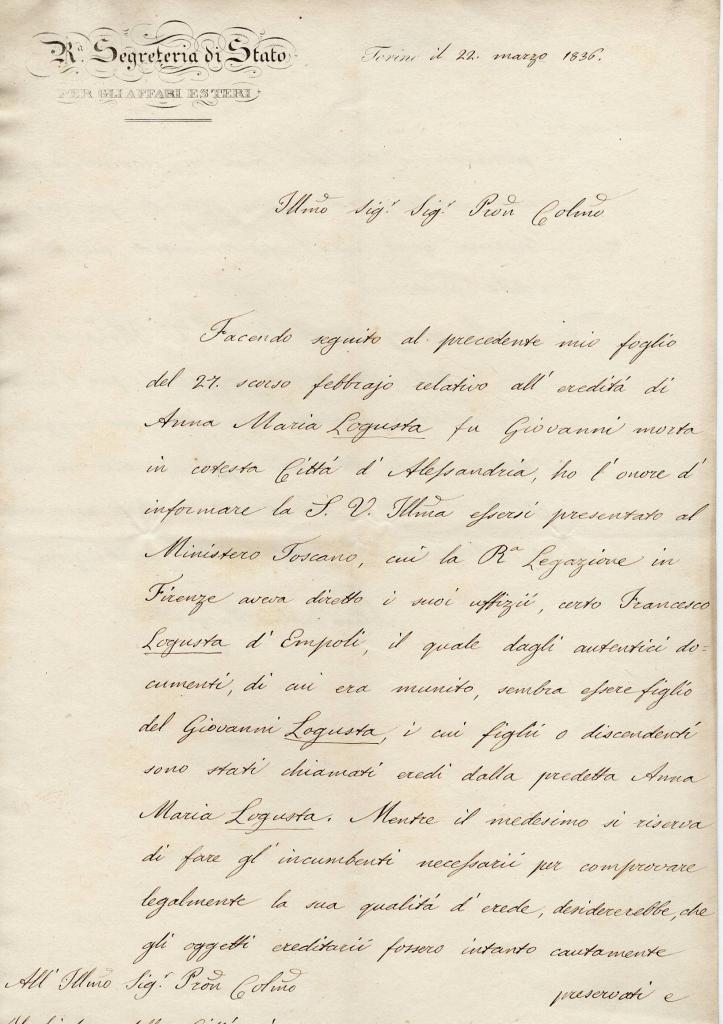 R.ª Segreteria di Stato
PER GLI AFFARI ESTERI
Torino il 22. marzo 1836.
Illmo Sig.r Sig.r Pron Colmo
Facendo seguito al precedente mio foglio
del 27. scorso febbrajo relativo all' eredità di
Anna Maria Logusta fu Giovanni morta
in cotesta Città d' Alessandria, ho l' onore d'
informare la S. V. Illma essersi presentato al
Ministero Toscano, cui la Rª Legazione in
Firenze aveva diretto i suoi uffizii, certo Francesco
Logusta d' Empoli, il quale dagli autentici do=
cumenti, di cui era munito, sembra essere figlio
del Giovanni Logusta, i cui figlii o discendenti
sono stati chiamati eredi dalla predetta Anna
Maria Logusta. Mentre il medesimo si riserva
di fare gl' incumbenti necessarii per comprovare
legalmente la sua qualità d' erede, desidererebbe, che
gli oggetti ereditarii fossero intanto cautamente
preservati e
All' Illmo Sig.r Pron Colmo